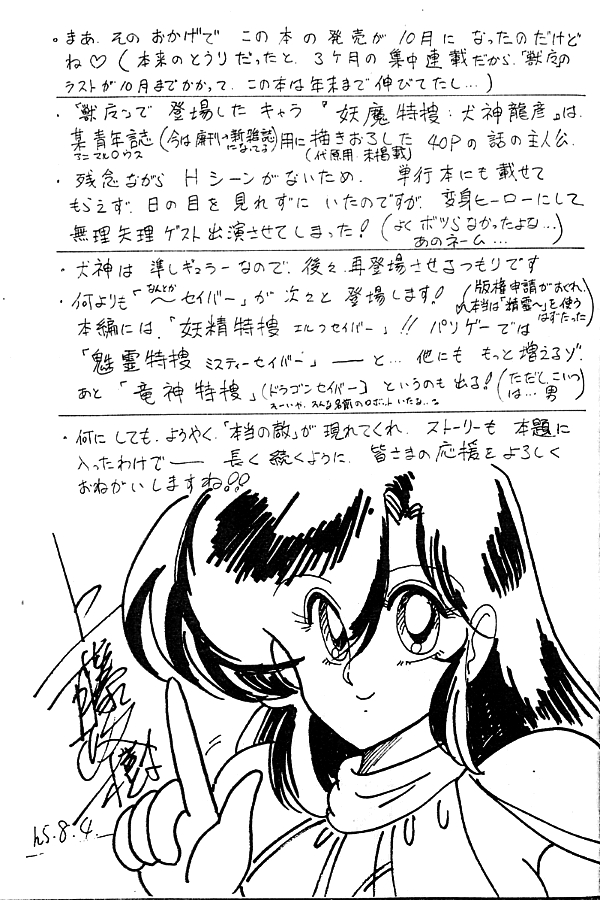 。まあ、そのおかげで この本の発売が 10月に なったのだけど
ね♡ (本来のとうりだったと、3ヶ月の集中連載だから、「獣戻」の
ラストが10月までかかって、この本は年末まで伸びてたし…)
・「獣戻」で 登場した キャラ 『妖魔特捜:犬神龍彦』は、
某青年誌 (今は廃刊→新雑誌になってる) 用に描きおろした 40Pの話の主人公.
アニマルハウス (代原用・未掲載)
・残念ながら Hシーンがないため、 単行本にも載せて
もらえず、日の目を見れずに いたのですが、変身ヒーローにして
無理矢理 ゲスト出演させてしまった! (よくボツらなかったよな…
あのネーム…)
・犬神は 準レギュラーなので、後々、再登場させるつもりです
・何よりも「〜セイバー」が 次々と 登場します! (版権申請がおくれ、
なんとか
本当は「精霊〜」を使うはずだった)
本編には、「妖精特捜 エルフセイバー」!! パソゲーでは
「魁霊特捜 ミスティーセイバー」 ——と… 他にも もっと増えるゾ.
あと 「竜神特捜」(ドラゴンセイバー) というのも出る! (ただし、こいつは…男)
えーいや、そんな名前のロボットいたな…。
・何にしても、ようやく、「本当の敵」が 現れてくれ、ストーリーも 本題に
入ったわけで—— 長く続くように、皆さまの応援をよろしく
おねがいしますね!!
h5.8.4.